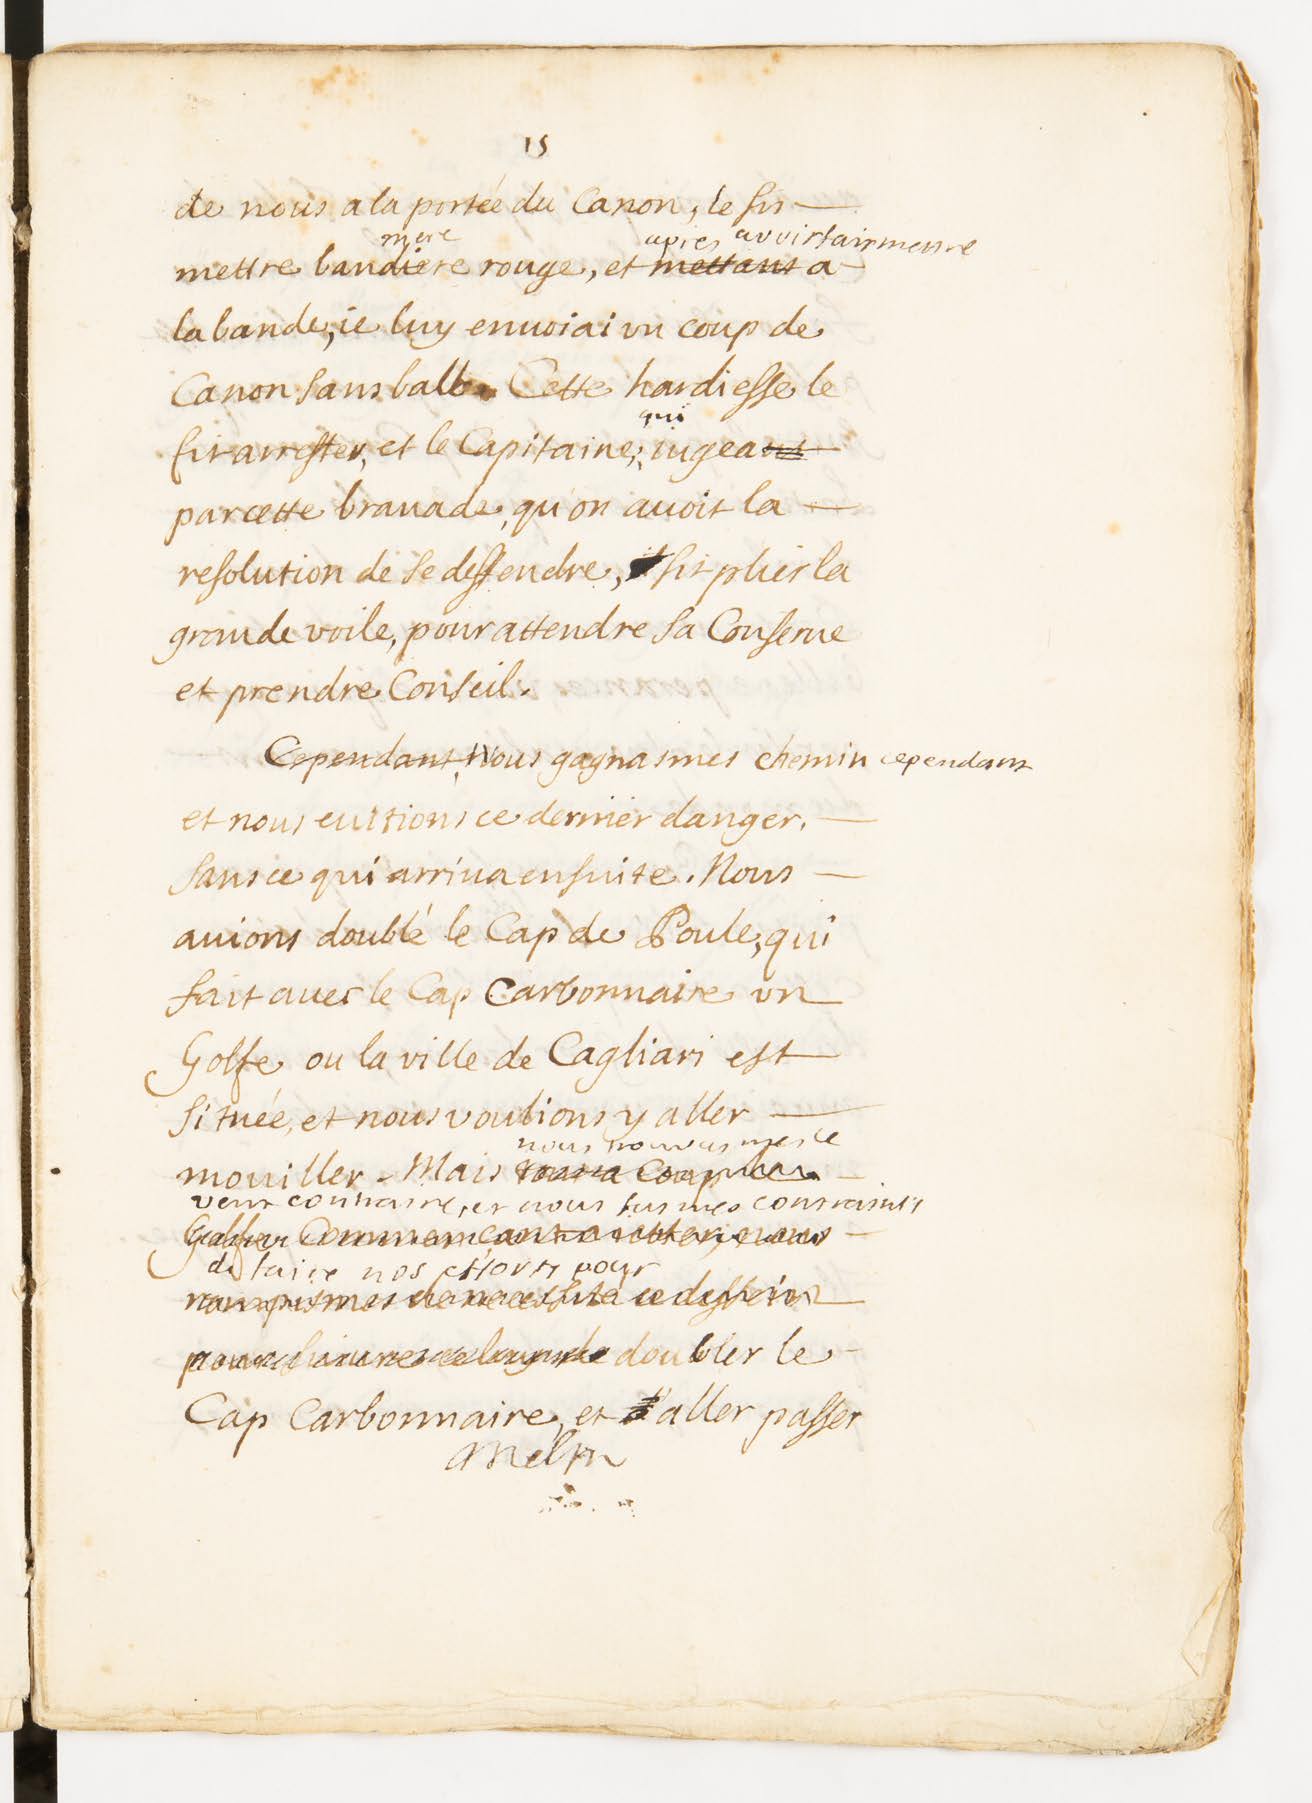 15
de nous a la portée du Canon, le fis
mere
apres avoir fait mettre
mettre bandiere rouge, et mettant a
la bande, ie luy enuoiai vn coup de
Canon sans balle. Cette hardiesse le
qui
fit arrester, et le Capitaine, iugeant
par cette brauade, qu'on auoit la
resolution de se deffendre, fit plier la
grande voile, pour attendre sa Conserue
et prendre Conseil.
Cependant, Nous gagnasmes chemin cependant
et nous euitions ce dernier danger,
sans ce qui arriua ensuite. Nous
auions doublé le Cap de Poule, qui
fait auec le Cap Carbonnaire vn
Golfe ou la ville de Cagliari est
située, et nous voulions y aller
nous trouuasmes le
mouiller. Mais tout a Coup
vent contraire, et nous fusmes contraints
Commençant a nous
de faire nos efforts pour
ce dessein
pour doubler le
Cap Carbonnaire, et aller passer